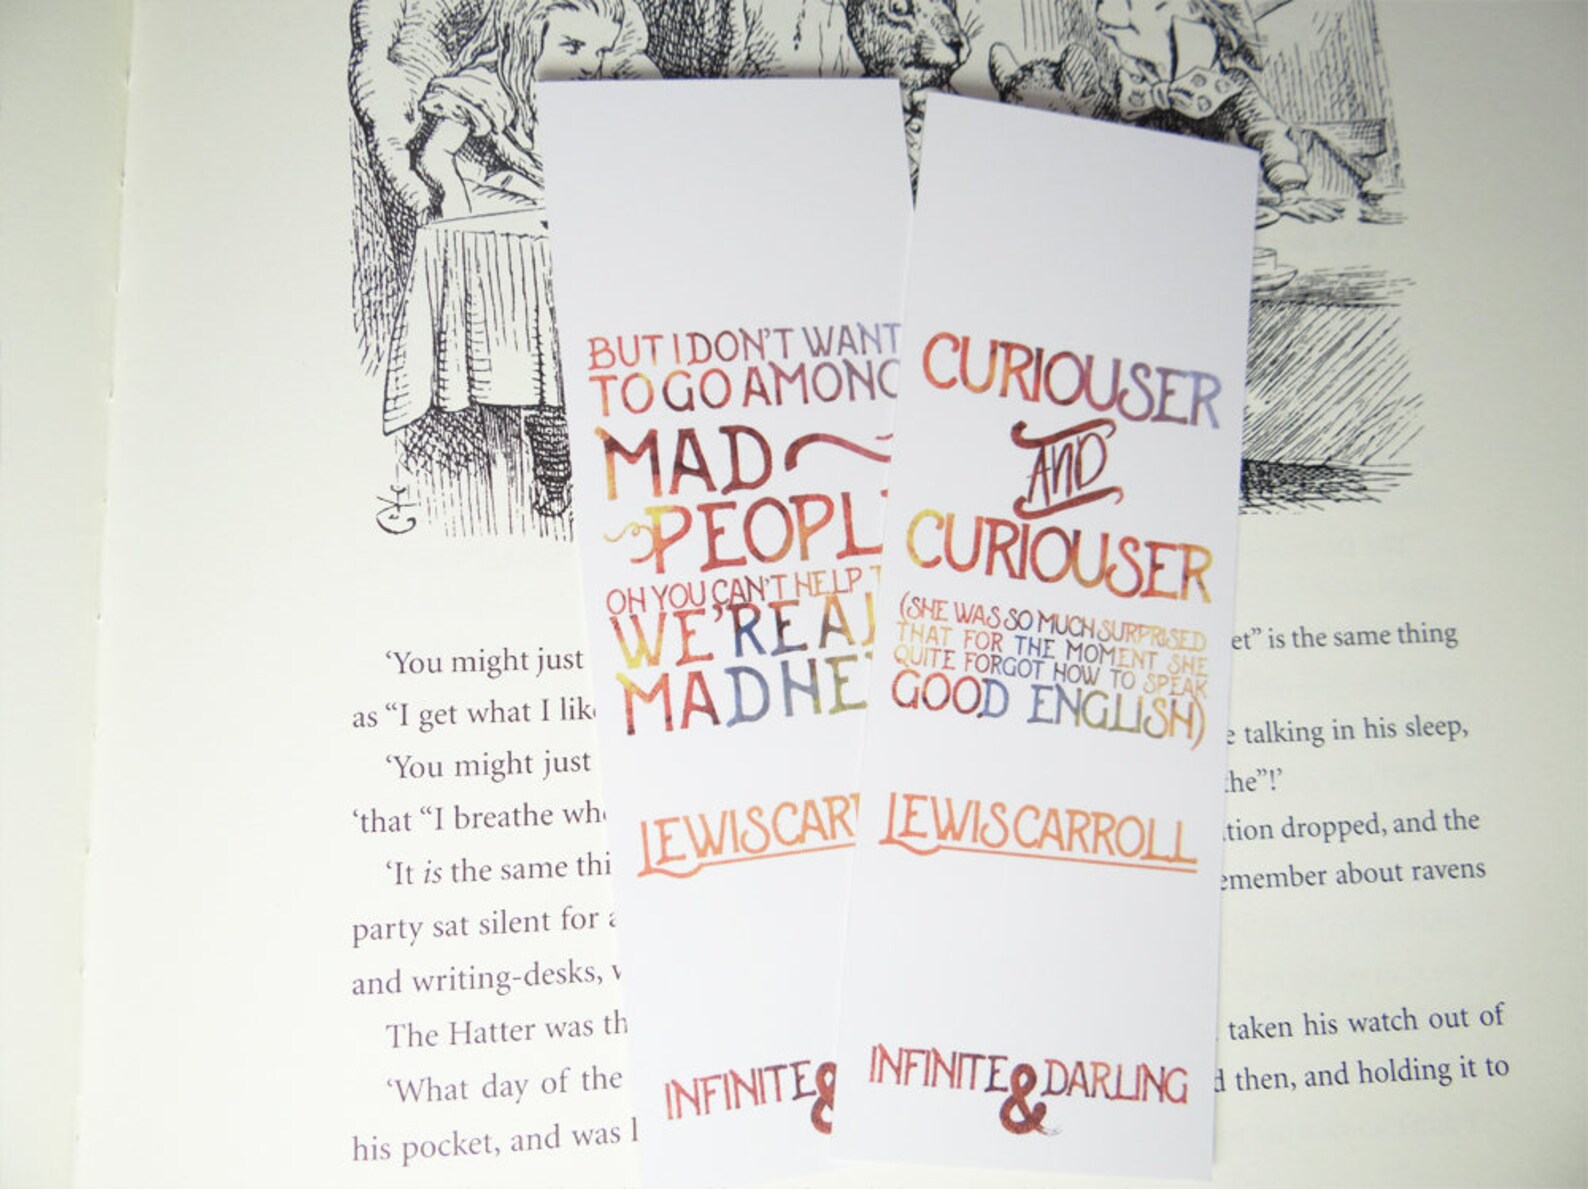 BUT I DON'T WANT
TO GO AMONG
MAD
PEOPL
OH YOU CAN'T HELP T
WE'RE AL
MAD HE
LEWIS CAR
INFINITE &
CURIOUSER
AND
CURIOUSER
(SHE WAS SO MUCH SURPRISED
THAT FOR THE MOMENT SHE
QUITE FORGOT HOW TO SPEAK
GOOD ENGLISH)
LEWIS CARROLL
INFINITE & DARLING
‘You might just
et” is the same thing
as “I get what I like
‘You might just
e talking in his sleep,
‘that “I breathe whe
the”!’
‘It is the same thi
tion dropped, and the
party sat silent for a
emember about ravens
and writing-desks, w
The Hatter was th
taken his watch out of
‘What day of the
d then, and holding it to
his pocket, and was l